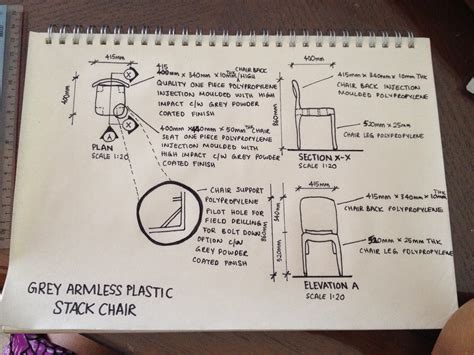 415mm
400mm
X
X
A
PLAN
SCALE 1:20
415
400mm x 340mm x 10mm THK CHAIR BACK /HIGH
QUALITY ONE PIECE POLYPROPYLENE
INJECTION MOULDED WITH HIGH
IMPACT C/W GREY POWDER
COATED FINISH
400mm x 440mm x 50mm THK CHAIR SEAT
ONE PIECE POLYPROPYLENE
INJECTION MOULDED WITH
HIGH IMPACT C/W GREY POWDER
COATED FINISH
CHAIR SUPPORT
POLYPROPYLENE
PILOT HOLE FOR
FIELD DRILLING FOR
BOLT DOWN
OPTION C/W
GREY POWDER
COATED FINISH
400mm
860mm
415mm x 340mm x 10mm THK
CHAIR BACK INJECTION
MOULDED POLYPROPYLENE
520mm x 25mm
CHAIR LEG POLYPROPYLENE
SECTION X-X
SCALE 1:20
415mm
340mm
520mm
860mm
415mm x 340mm x 10mm THK
CHAIR BACK POLYPROPYLENE
520mm x 25mm THK
CHAIR LEG POLYPROPYLENE
ELEVATION A
SCALE 1:20
GREY ARMLESS PLASTIC
STACK CHAIR